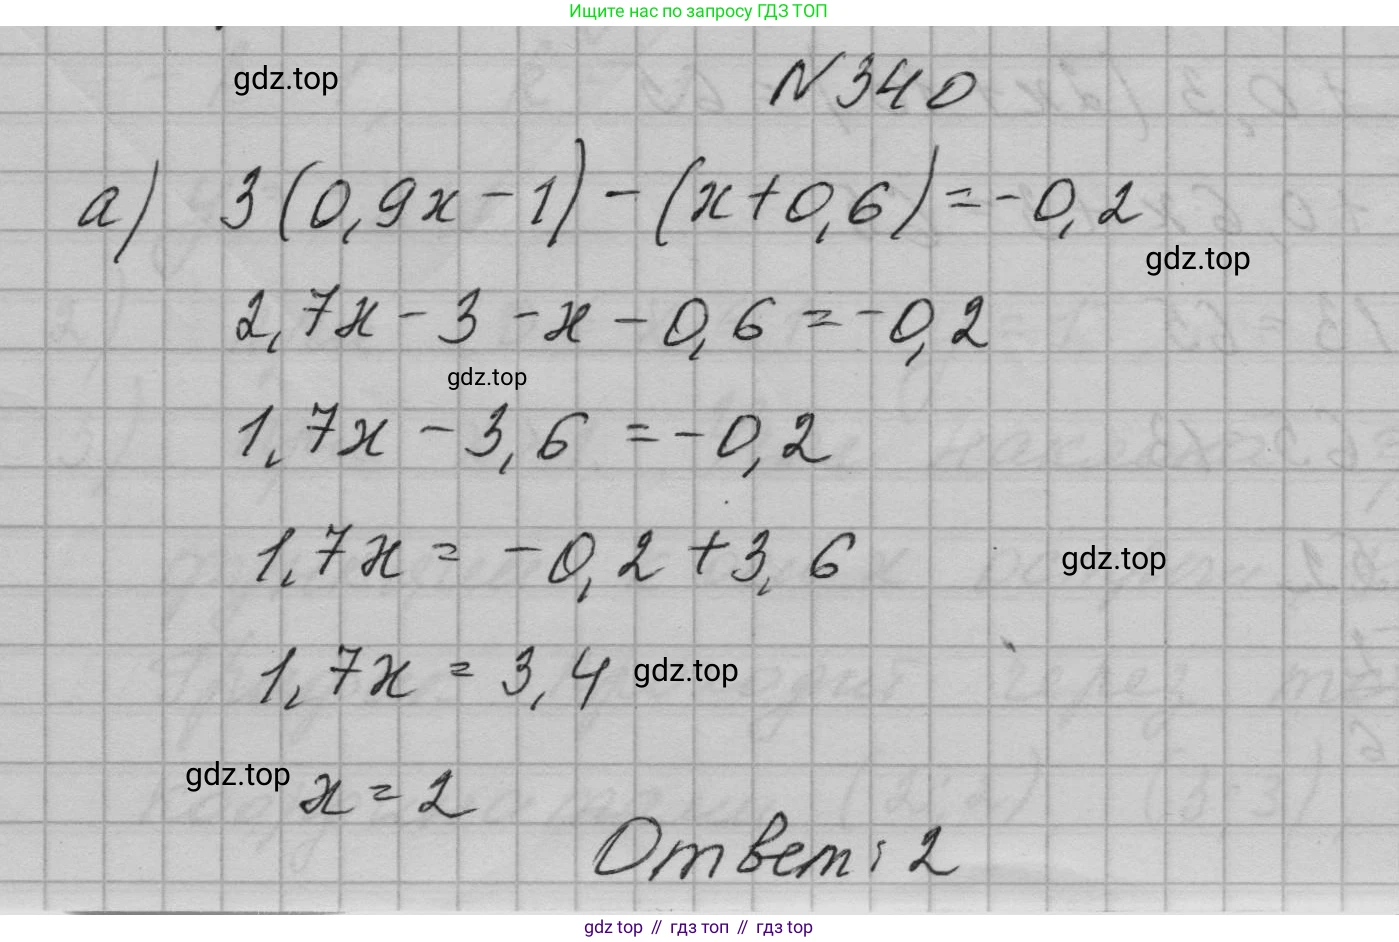 Ищите нас по запросу ГДЗ ТОП
gdz.top
N 340
а) 3(0,9x - 1) - (x + 0,6) = -0,2
gdz.top
2,7x - 3 - x - 0,6 = -0,2
gdz.top
1,7x - 3,6 = -0,2
1,7x = -0,2 + 3,6
gdz.top
1,7x = 3,4
gdz.top
gdz.top
x = 2
Ответ: 2
gdz top // гдз топ // гдз top